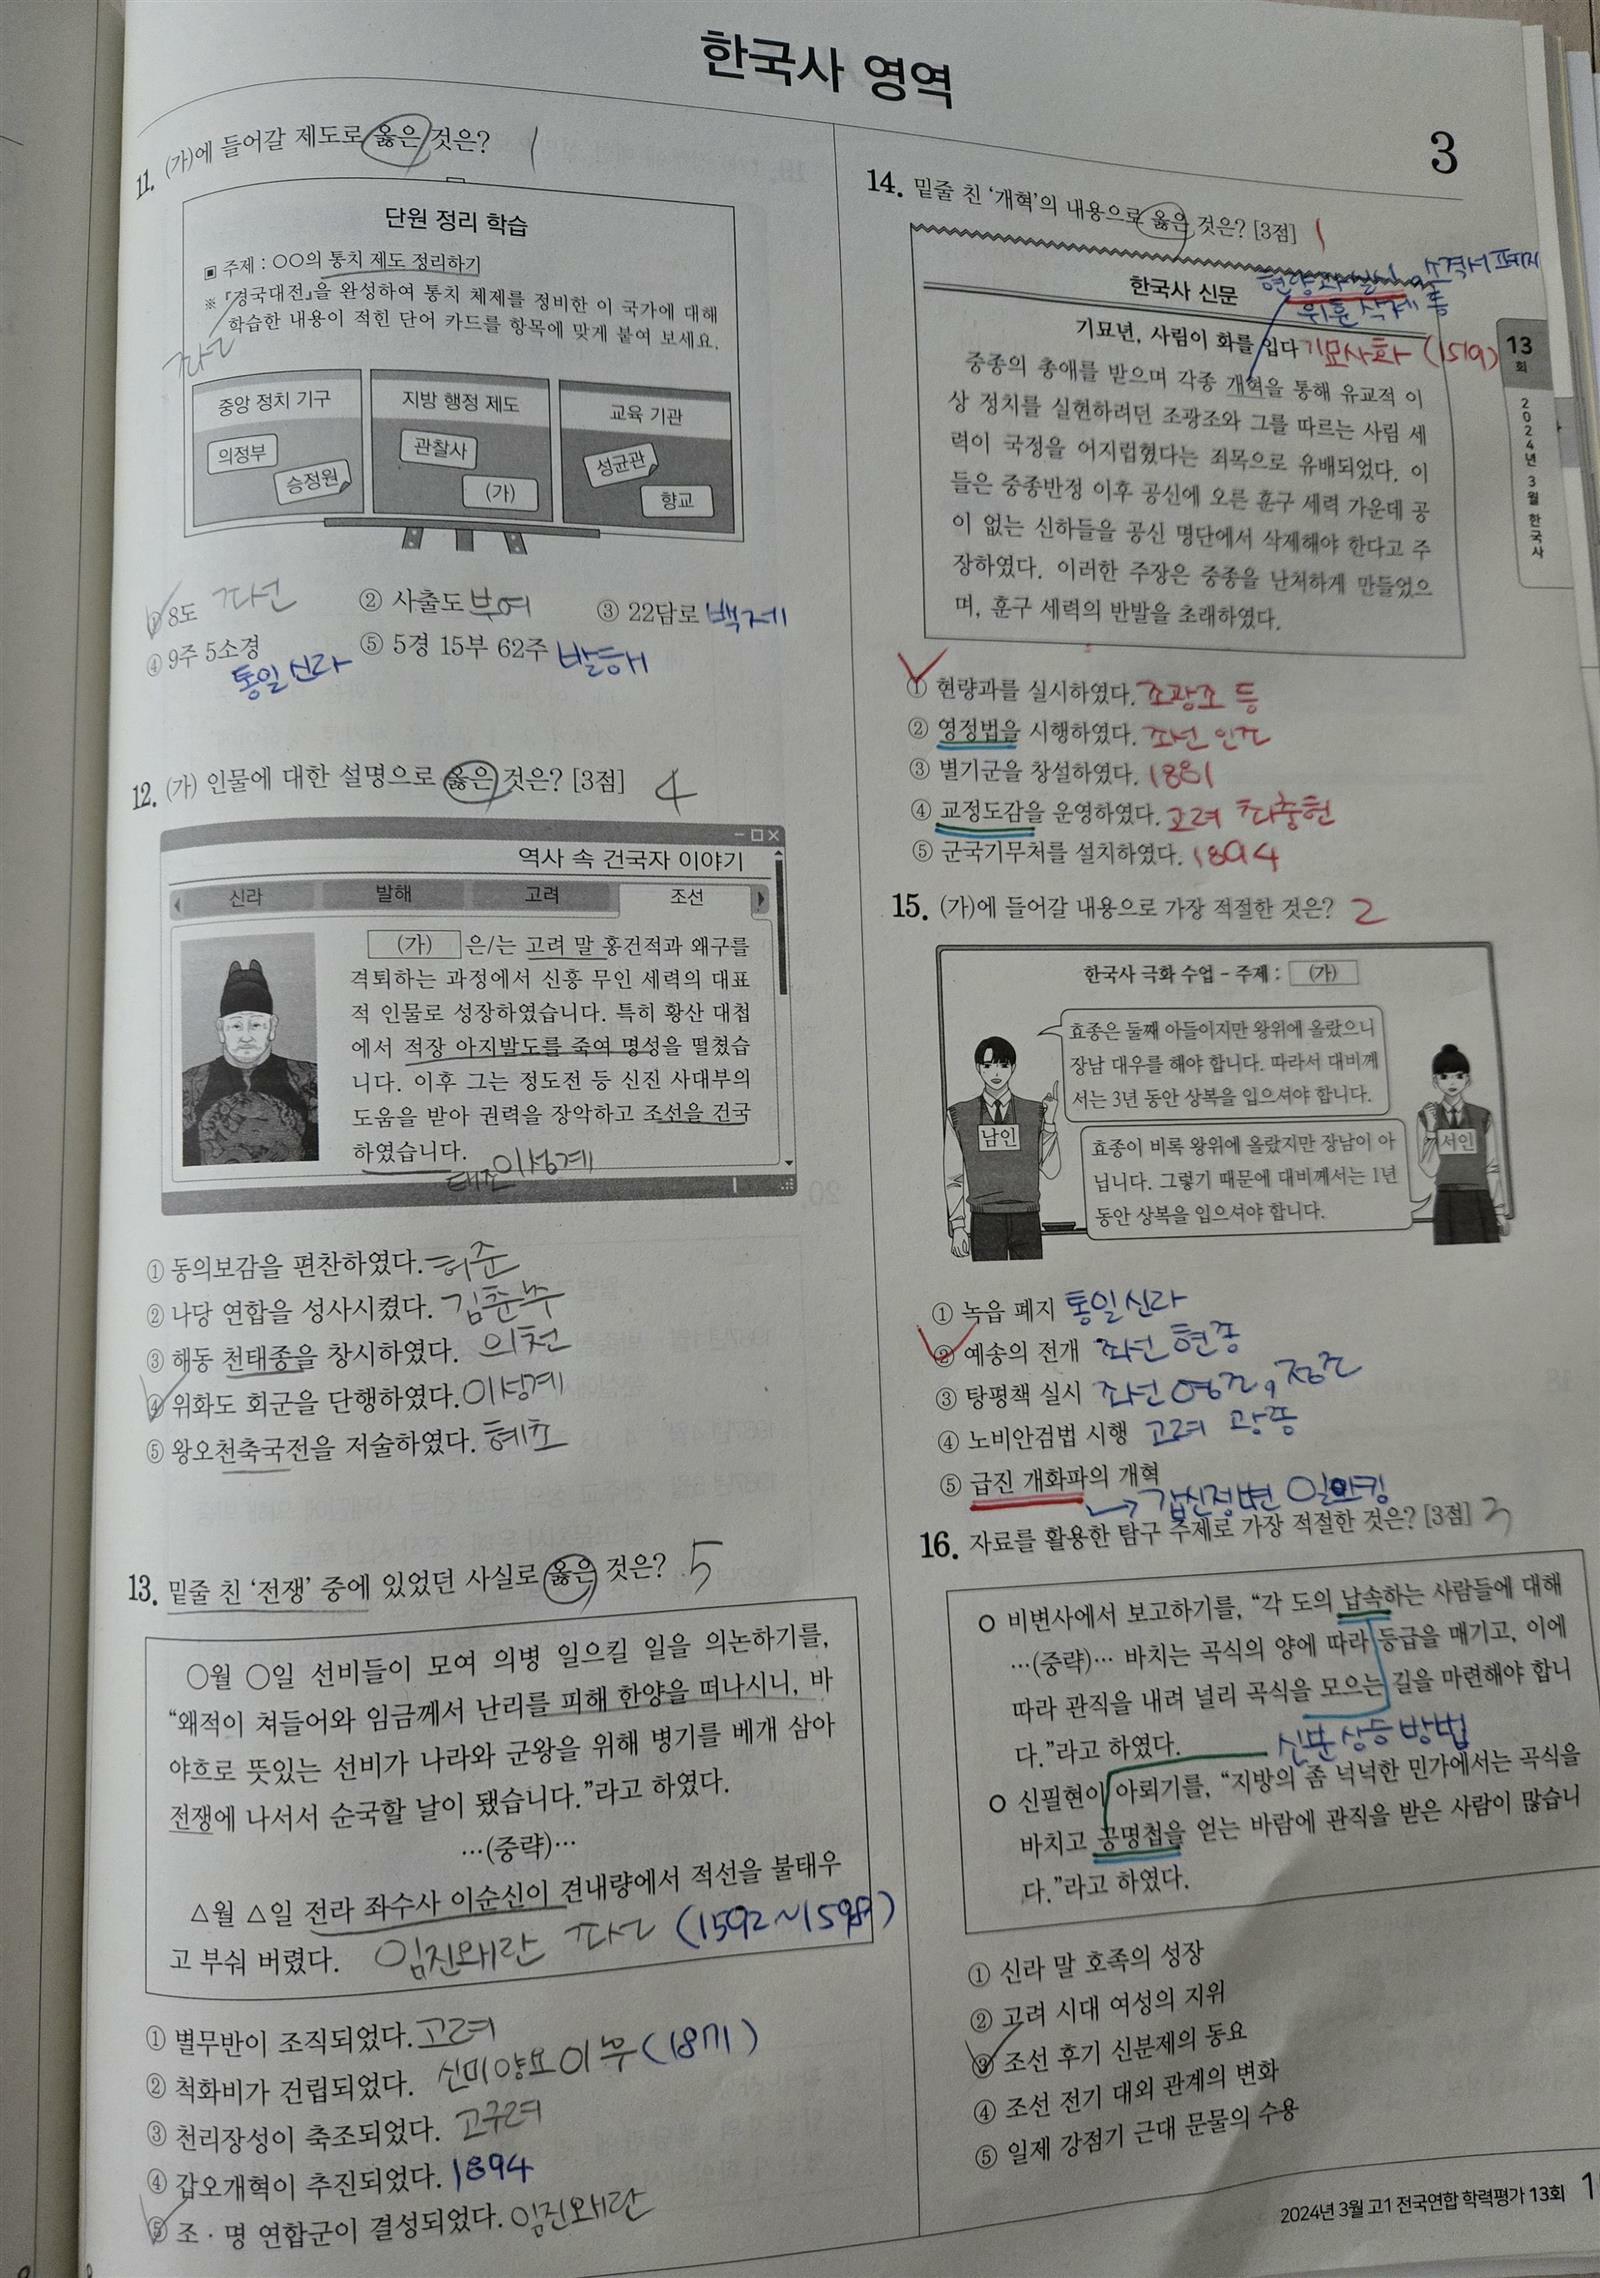 한국사 영역
3
11. (가)에 들어갈 제도로 옳은 것은? 1
단원 정리 학습
▣ 주제 : ○○의 통치 제도 정리하기
※ 『경국대전』을 완성하여 통치 체제를 정비한 이 국가에 대해
학습한 내용이 적힌 단어 카드를 항목에 맞게 붙여 보세요.
조선
중앙 정치 기구
의정부
승정원
지방 행정 제도
관찰사
(가)
교육 기관
성균관
향교
① 8도 조선 ② 사출도 부여 ③ 22담로 백제
④ 9주 5소경 ⑤ 5경 15부 62주 발해
통일 신라
12. (가) 인물에 대한 설명으로 옳은 것은? [3점] 4
역사 속 건국자 이야기
신라 발해 고려 조선
(가) 은/는 고려 말 홍건적과 왜구를
격퇴하는 과정에서 신흥 무인 세력의 대표
적 인물로 성장하였습니다. 특히 황산 대첩
에서 적장 아지발도를 죽여 명성을 떨쳤습
니다. 이후 그는 정도전 등 신진 사대부의
도움을 받아 권력을 장악하고 조선을 건국
하였습니다.
태조 이성계
① 동의보감을 편찬하였다. 허준
② 나당 연합을 성사시켰다. 김춘추
③ 해동 천태종을 창시하였다. 의천
④ 위화도 회군을 단행하였다. 이성계
⑤ 왕오천축국전을 저술하였다. 혜초
13. 밑줄 친 ‘전쟁’ 중에 있었던 사실로 옳은 것은? 5
○월 ○일 선비들이 모여 의병 일으킬 일을 의논하기를,
“왜적이 쳐들어와 임금께서 난리를 피해 한양을 떠나시니, 바
야흐로 뜻있는 선비가 나라와 군왕을 위해 병기를 베개 삼아
전쟁에 나서서 순국할 날이 됐습니다.”라고 하였다.
…(중략)…
△월 △일 전라 좌수사 이순신이 견내량에서 적선을 불태우
고 부숴 버렸다. 임진왜란 조선 (1592~1598)
① 별무반이 조직되었다. 고려
② 척화비가 건립되었다. 신미양요 이후 (1871)
③ 천리장성이 축조되었다. 고구려
④ 갑오개혁이 추진되었다. 1894
⑤ 조·명 연합군이 결성되었다. 임진왜란
14. 밑줄 친 ‘개혁’의 내용으로 옳은 것은? [3점] 1
한국사 신문 현량과 실시, 소격서 폐지
위훈 삭제 등
기묘년, 사림이 화를 입다 기묘사화 (1519)
중종의 총애를 받으며 각종 개혁을 통해 유교적 이
상 정치를 실현하려던 조광조와 그를 따르는 사림 세
력이 국정을 어지럽혔다는 죄목으로 유배되었다. 이
들은 중종반정 이후 공신에 오른 훈구 세력 가운데 공
이 없는 신하들을 공신 명단에서 삭제해야 한다고 주
장하였다. 이러한 주장은 중종을 난처하게 만들었으
며, 훈구 세력의 반발을 초래하였다.
① 현량과를 실시하였다. 조광조 등
② 영정법을 시행하였다. 조선 인조
③ 별기군을 창설하였다. 1881
④ 교정도감을 운영하였다. 고려 최충헌
⑤ 군국기무처를 설치하였다. 1894
15. (가)에 들어갈 내용으로 가장 적절한 것은? 2
한국사 극화 수업 - 주제 : (가)
효종은 둘째 아들이지만 왕위에 올랐으니
장남 대우를 해야 합니다. 따라서 대비께
서는 3년 동안 상복을 입으셔야 합니다.
남인
효종이 비록 왕위에 올랐지만 장남이 아
닙니다. 그렇기 때문에 대비께서는 1년
동안 상복을 입으셔야 합니다.
서인
① 녹읍 폐지 통일 신라
② 예송의 전개 조선 현종
③ 탕평책 실시 조선 영조, 정조
④ 노비안검법 시행 고려 광종
⑤ 급진 개화파의 개혁
↳ 갑신정변 일으킴
16. 자료를 활용한 탐구 주제로 가장 적절한 것은? [3점] 3
○ 비변사에서 보고하기를, “각 도의 납속하는 사람들에 대해
…(중략)… 바치는 곡식의 양에 따라 등급을 매기고, 이에
따라 관직을 내려 널리 곡식을 모으는 길을 마련해야 합니
다.”라고 하였다. 신분 상승 방법
○ 신필현이 아뢰기를, “지방의 좀 넉넉한 민가에서는 곡식을
바치고 공명첩을 얻는 바람에 관직을 받은 사람이 많습니
다.”라고 하였다.
① 신라 말 호족의 성장
② 고려 시대 여성의 지위
③ 조선 후기 신분제의 동요
④ 조선 전기 대외 관계의 변화
⑤ 일제 강점기 근대 문물의 수용
13회
2024년 3월 한국사
2024년 3월 고1 전국연합 학력평가 13회